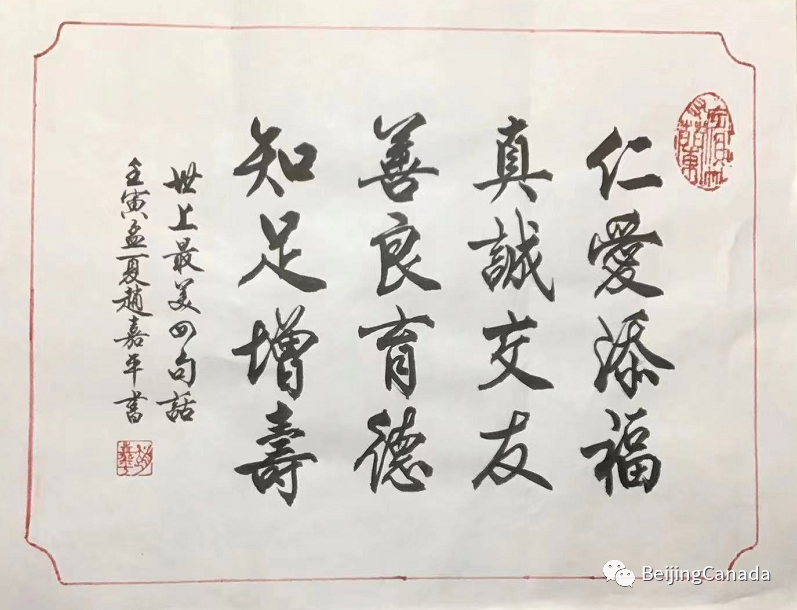 仁愛添福
真誠交友
善良育德
知足增壽
世上最美四句話
壬寅孟夏趙嘉平書
BeijingCanada